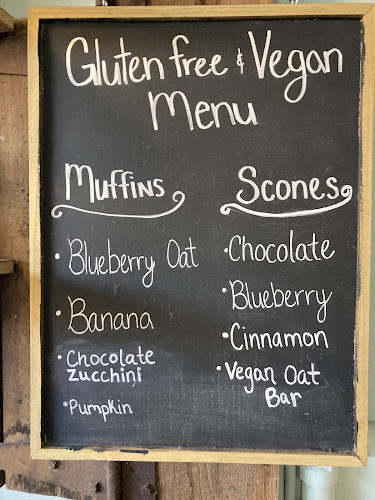 Gluten free & Vegan
Menu
Muffins
· Blueberry Oat
· Banana
· Chocolate
Zucchini
· Pumpkin
Scones
· Chocolate
· Blueberry
· Cinnamon
· Vegan Oat
Bar